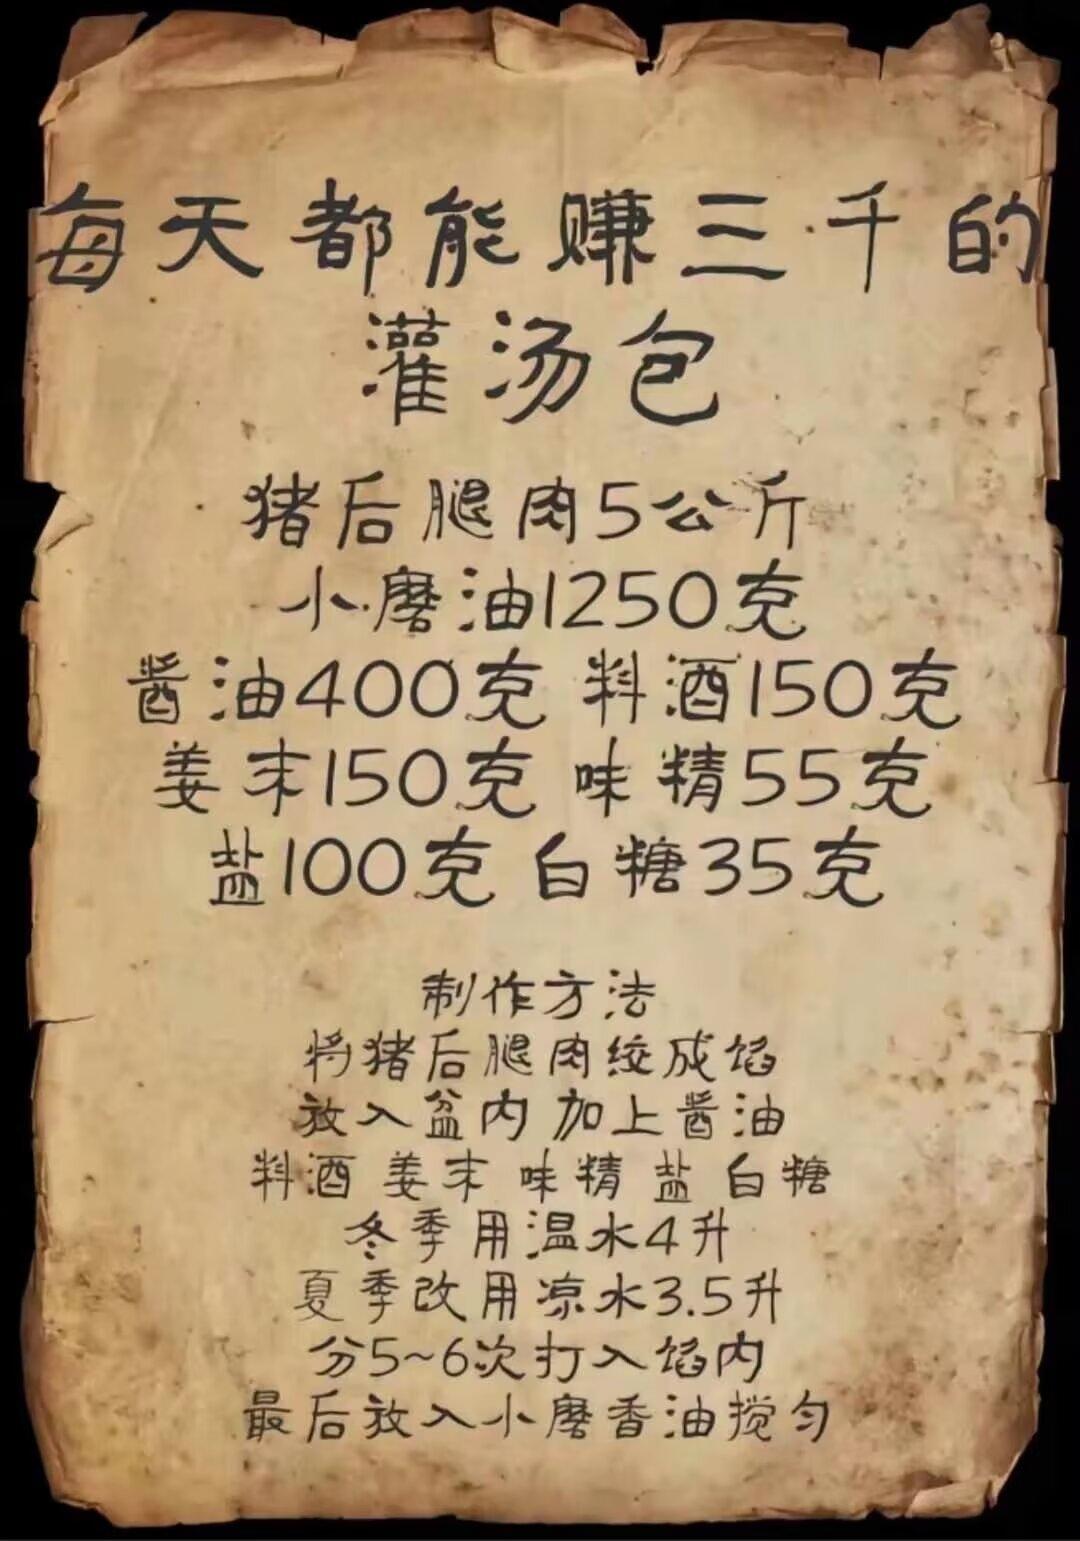 每天都能赚三千的
灌汤包
猪后腿肉5公斤
小磨油1250克
酱油400克 料酒150克
姜末150克 味精55克
盐100克 白糖35克
制作方法
将猪后腿肉绞成馅
放入盆内 加上酱油
料酒 姜末 味精 盐 白糖
冬季用温水4升
夏季改用凉水3.5升
分5~6次打入馅内
最后放入小磨香油搅匀